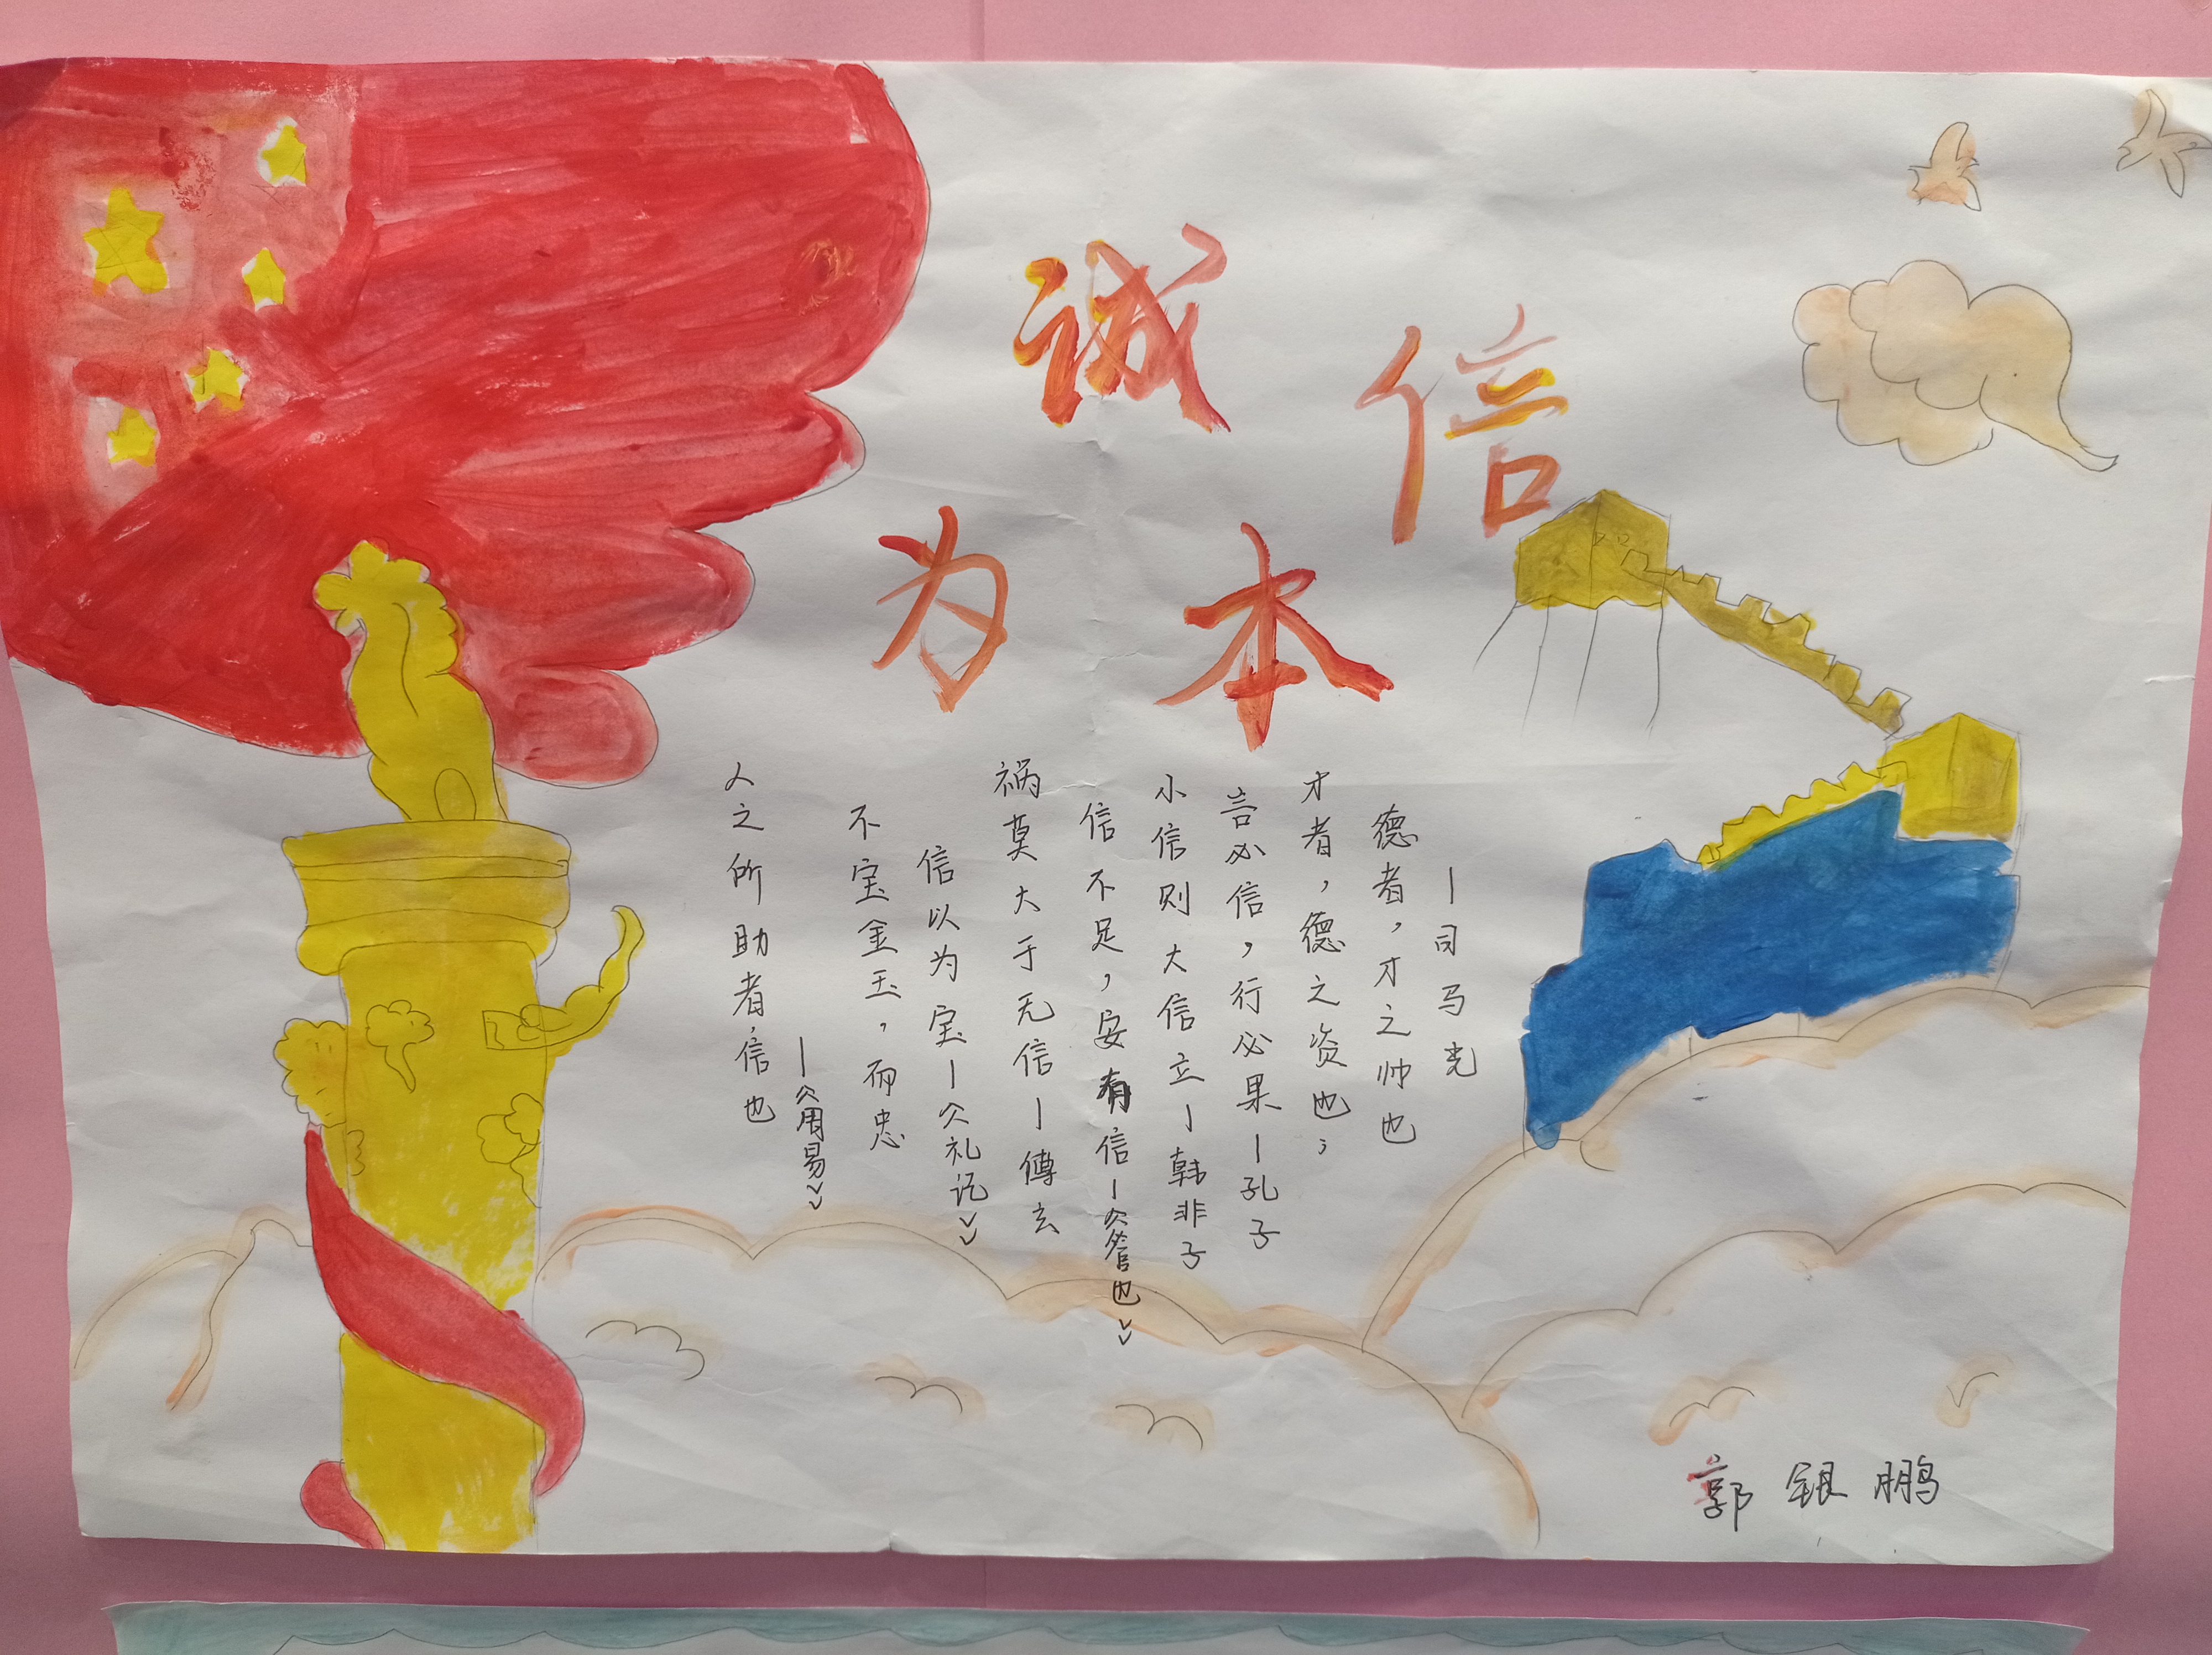 诚信
为本
人之所助者,信也
—《周易》
不宝金玉,而忠
信以为宝—《礼记》
祸莫大于无信—傅玄
信不足,安有信—《也》
小信则大信立—韩非子
言必信,行必果—孔子
才者,德之资也;
德者,才之帅也
—司马光
郭银鹏